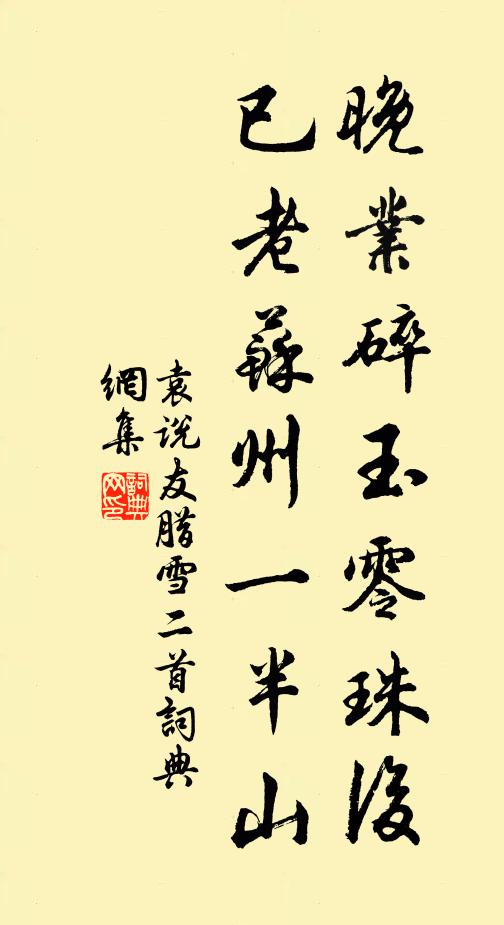 晚業碎玉零珠後
已老蘇州一半山
袁說友腊雪二首詞典
網集
詞典
网印